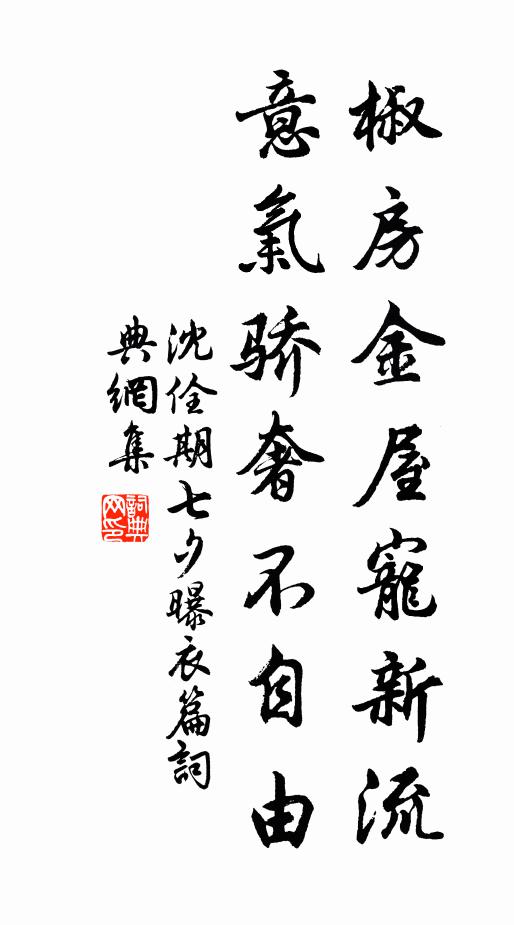 椒房金屋寵新流
意氣骄奢不自由
沈佺期七夕曝衣篇詞
典網集
詞典網印